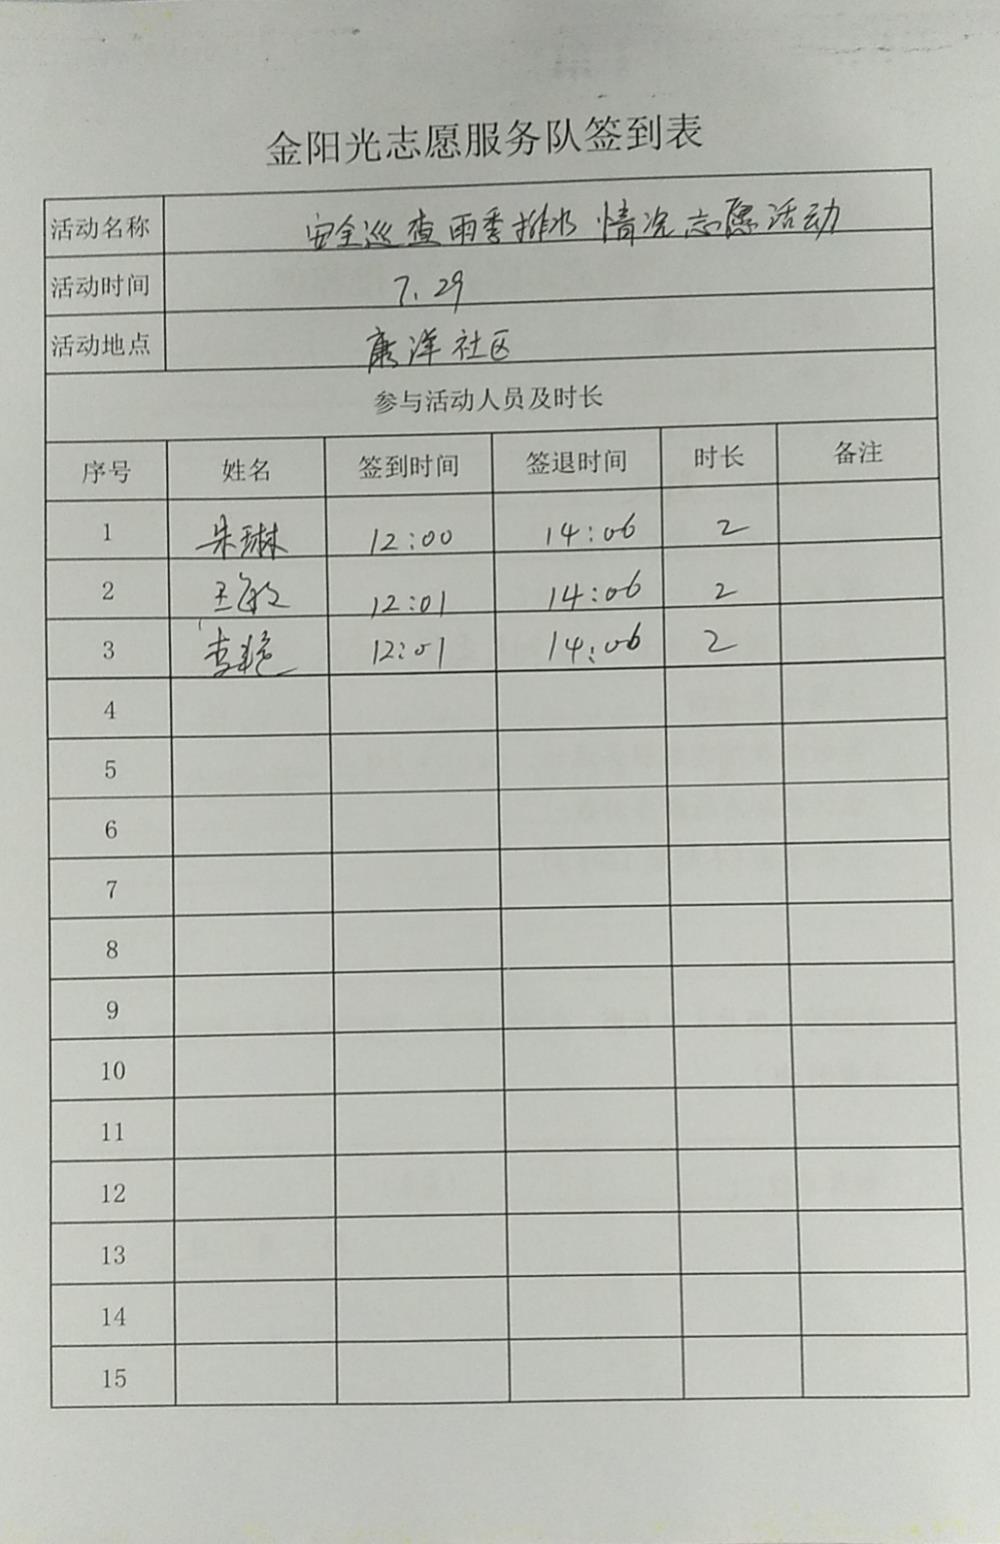 金阳光志愿服务队签到表
活动名称 安全巡查雨季排水情况志愿活动
活动时间 7.29
活动地点 康洋社区
参与活动人员及时长
序号 姓名 签到时间 签退时间 时长 备注
1 朱琳 12:00 14:06 2
2 王敏 12:01 14:06 2
3 李艳 12:01 14:06 2
4
5
6
7
8
9
10
11
12
13
14
15